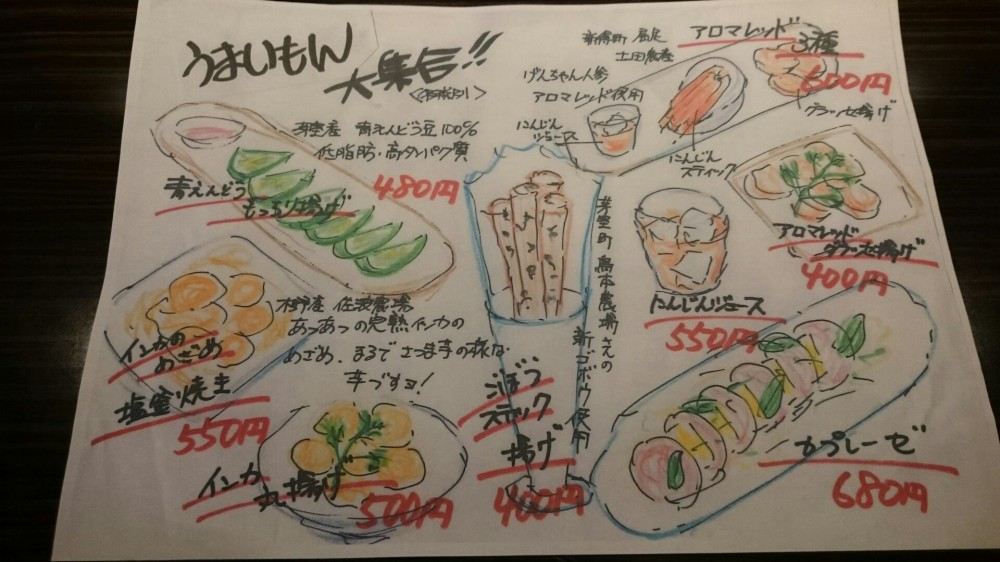 うまいもん
大集合!!
<税別>
芽室産 青えんどう豆100%
低脂肪・高タンパク質
青えんどう
もっちり揚げ
480円
産 佐波農場
あつあつの完熟インカの
めざめ、まるでさつま芋の様な
芋ですョ!
インカの
めざめ
塩釜焼き
550円
インカ
丸揚げ
500円
ごぼう
スティック
揚げ
400円
芽室町 島本農場さんの
新ゴボウ使用
土田農産
げんちゃん人参
アロマレッド使用
アロマレッド
3種
600円
にんじん
ジュース
にんじん
スティック
グラッセ揚げ
アロマレッド
グラッセ揚げ
400円
にんじんジュース
550円
カプレーゼ
680円